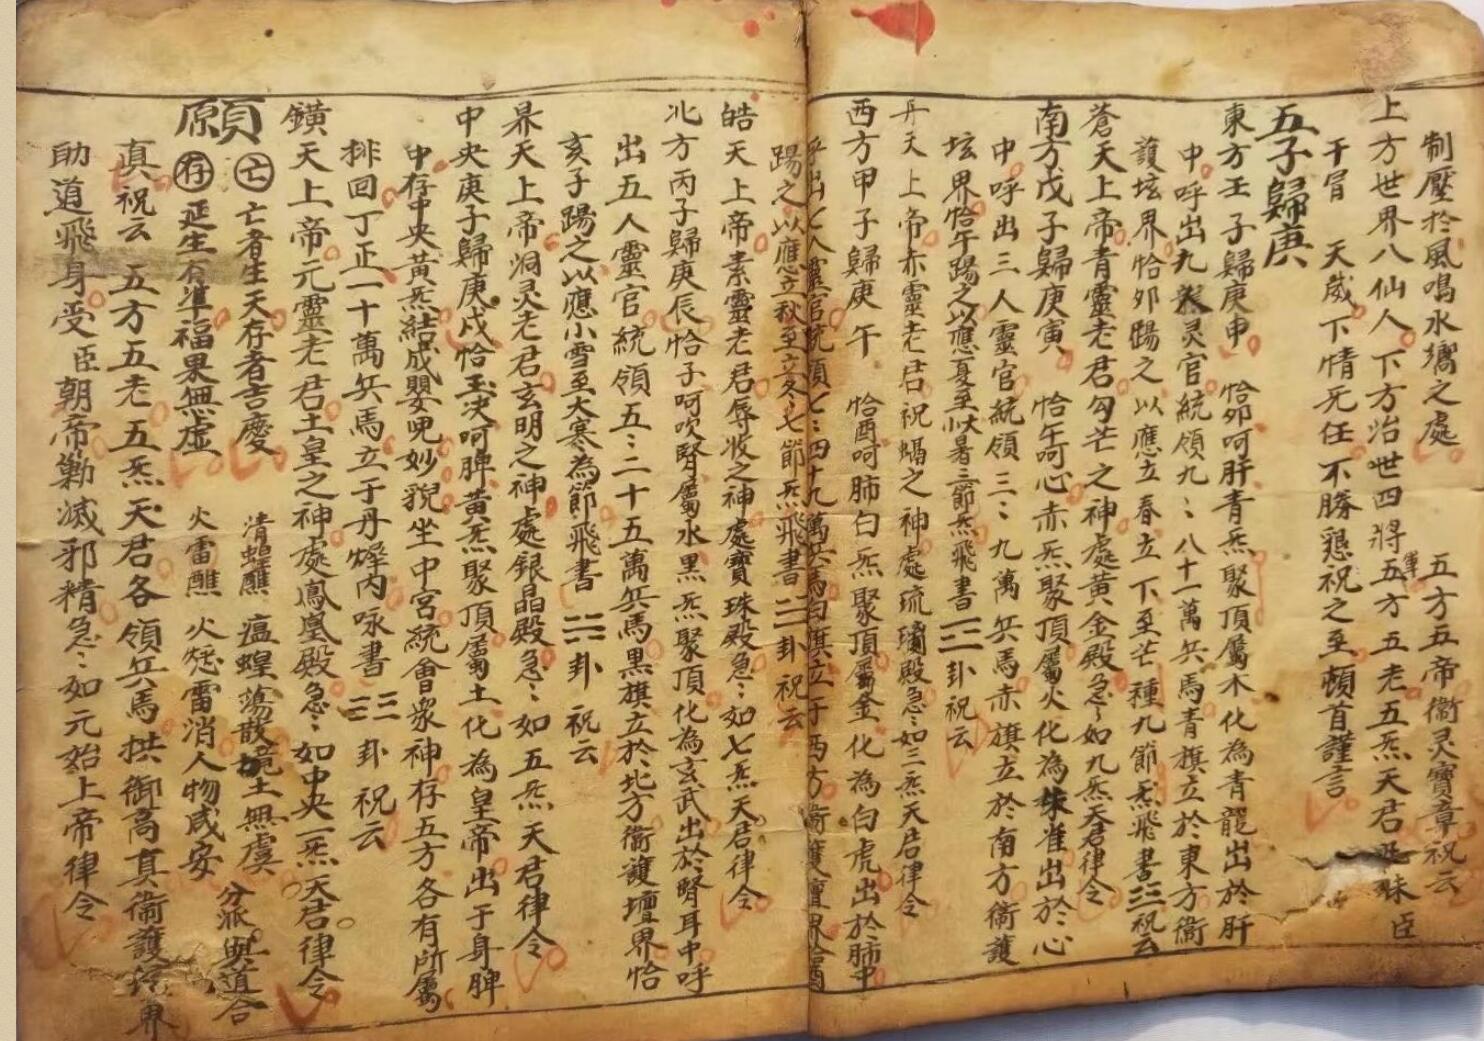 制壓於風鳴水響之處 五方五帝衞灵寶章祝云
上方世界八仙人下方治世四將軍五方五老五炁天君 臣
干冒 天威下情无任不勝懇祝之至頓首謹言
五子歸庚
東方壬子歸庚申 恰卯呵肝青炁聚頂屬木化為青龍出於肝
中呼出九炁灵官統領九〻八十一萬兵馬青旗立於東方衞
護坛界恰卯踢之以應立春立下至芒種九節炁飛書☲祝云
蒼天上帝青靈老君勾芒之神處黄金殿急〻如九炁天君律令
南方戊子歸庚寅 恰午呵心赤炁聚頂屬火化為朱准出於心
中呼出三人靈官統領三〻九萬兵馬赤旗立於南方衞護
坛界恰午踢之以應夏至小大暑三節炁飛書☲卦祝云
丹天上帝赤靈老君祝蝠之神處琉璃殿急〻如三炁天君律令
西方甲子歸庚午 恰酉呵肺白炁聚頂屬金化為白虎出於肺中
呼出七人靈官統領七〻四十九萬兵馬白旗立于西方衞護壇界恰酉
踢之以應立秋至立冬七節炁飛書☱卦祝云
皓天上帝素靈老君辱收之神處寳珠殿急〻如七炁天君律令
北方丙子歸庚辰恰子呵吹腎屬水黒炁聚頂化為玄武出於腎耳中呼
出五人靈官統領五〻二十五萬兵馬黒旗立於北方衞護壇界恰
亥子踢之以應小雪至大寒為節飛書☵卦 祝云
昦天上帝洞灵老君玄明之神處銀晶殿急〻如五炁天君律令
中央庚子歸庚戌恰玉决呵脾黄炁聚頂屬土化為皇帝出于身脾
中存中央黄炁結成嬰兒妙貌坐中宮統會衆神存五方各有所屬
排回丁正一十萬兵馬立于丹墀内咏書☷卦祝云
鐄天上帝元靈老君土皇之神處鳳凰殿急〻如中央一炁天君律令
願 亡 亡者生天存者吉慶 清蝗醮 瘟蝗蕩散境土無虞 分派與道合
存 延生有準福果無虚 火雷醮 火熄雷消人物咸安
真祝云 五方五老五炁天君各領兵馬拱御高真衞護 界
助道飛身受臣朝帝勦滅邪精急〻如元始上帝律令